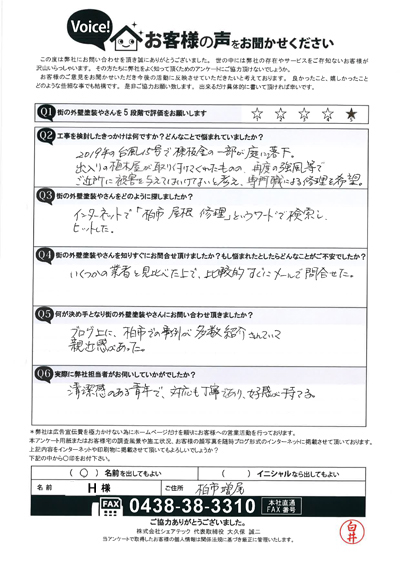 Voice!
お客様の声をお聞かせください
この度は弊社にお問い合わせを頂き誠にありがとうございました。世の中には弊社の存在やサービスをご存知ないお客様が
沢山いらっしゃいます。その方たちに弊社をよく知って頂くためのアンケートにご協力頂けないでしょうか。
お客様のご意見をお聞かせいただき今後の活動に反映させていただきたいと考えております。良かったこと、嬉しかったこと
どのような些細な事でも結構です。是非ご協力お願い致します。出来るだけ具体的に書いて頂ければ幸いです。
Q1 街の外壁塗装やさんを5段階で評価をお願いします ☆ ☆ ☆ ☆ ★
Q2 工事を検討したきっかけは何ですか?どんなことで悩まれていましたか?
2019年の台風15号で棟板金の一部が庭に落下。
出入りの植木屋が取り付けてくれたものの、再度の強風等で
ご近所に被害を与えてはいけないと考え、専門職による修理を希望。
Q3 街の外壁塗装やさんをどのように探しましたか?
インターネットで「柏市 屋根 修理」というワードで検索し、
ヒットした。
Q4 街の外壁塗装やさんを知りすぐにお問合せ頂けましたか?もし悩まれたとしたらどんなことがご不安でしたか?
いくつかの業者と見比べた上で、比較的すぐにメールで問合せた。
Q5 何が決め手となり街の外壁塗装やさんにお問い合わせ頂きましたか?
ブログ上に、柏市での事例が多数紹介されていて
親近感があった。
Q6 実際に弊社担当者がお伺いしていかがでしたか?
清潔感のある青年で、対応も丁寧であり、好感が持てる。
*弊社は広告宣伝費を極力かけない為にホームページだけを頼りにお客様への営業活動を行っております。
本アンケート用紙またはお客様宅の調査風景や施工状況、お客様の顔写真を随時ブログ形式のインターネットに掲載させて頂いております。
上記内容をインターネットや印刷物に掲載させて頂いてもよろしいでしょうか?
下記の中から〇印をお付け下さい。
( 〇 ) 名前を出してもよい ( ) イニシャルなら出してもよい
お名前 H 様 ご住所 柏市増尾
FAX 0438-38-3310 本社直通 FAX番号
ご協力ありがとうございました。
株式会社シェアテック 代表取締役 大久保 誠二
当アンケートで取得したお客様の個人情報は関係法規に基づき厳正に管理いたします。
白井